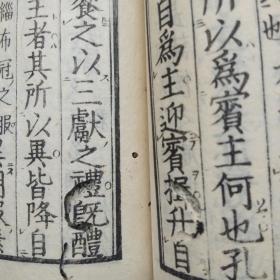 也
所以爲賓主何也孔
自爲主迎賓揖升自
饗之以三獻之禮既醴
主者其所以異皆降自
緇布冠之服